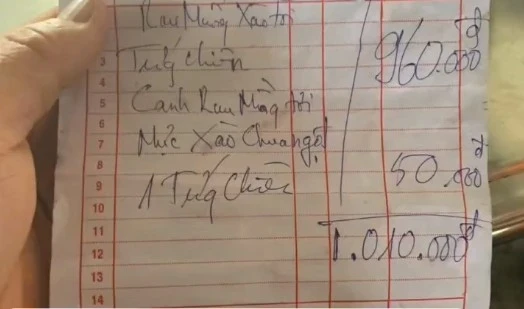 Rau Muống Xào tỏi
3 Trứng chiên 960.000đ
4
5 Canh Rau Mồng tơi
6
7 Mực Xào Chua ngọt
8 50.000đ
9 1 Trứng Chiên
10
11
12 1.010.000đ
13
14